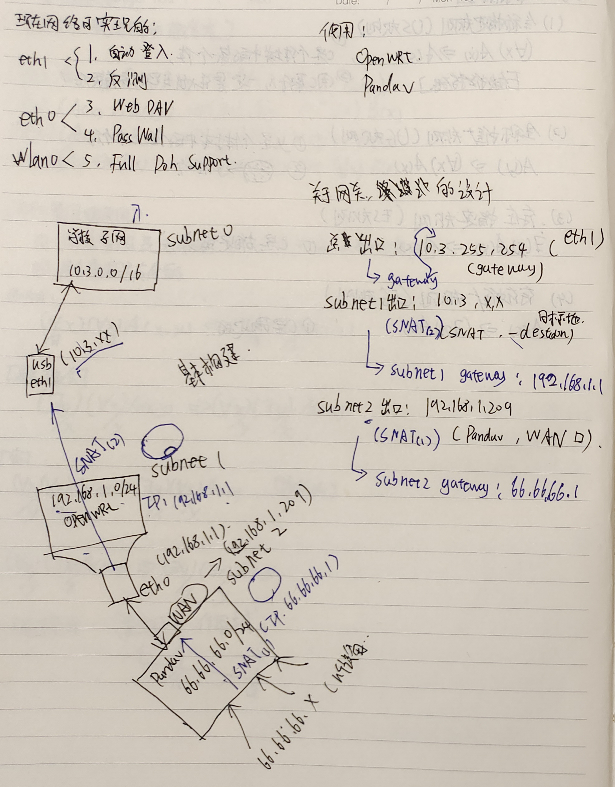 现在网络可实现的:
eth1 < 1. 自动登入
2. 反测
eth0 < 3. Web DAV
4. Pass Wall
Wlan0 < 5. Full Doh Support.
使用:
OpenWRT
Pandav
关于网关, 的设计
出口: 10.3.255.254 (eth1)
(gateway)
gateway
subnet1出口: 10.3.x.x
(SNAT(2)) (SNAT. - 
subnet1 gateway: 192.168.1.1
subnet2 出口: 192.168.1.209
(SNAT(1)) (Pandav, WAN 口)
subnet2 gateway: 66.66.66.1
subnet 0
10.3.0.0/16
usb
eth1
(10.3.xx)
SNAT(2)
subnet 1
192.168.1.0/24
OPENWRT
IP: 192.168.1.1
eth0
(192.168.1.1)
WAN
(192.168.1.209)
subnet 2
Pandav
66.66.66.0/24
SNAT(1)
(IP. 66.66.66.1)
66.66.66.X